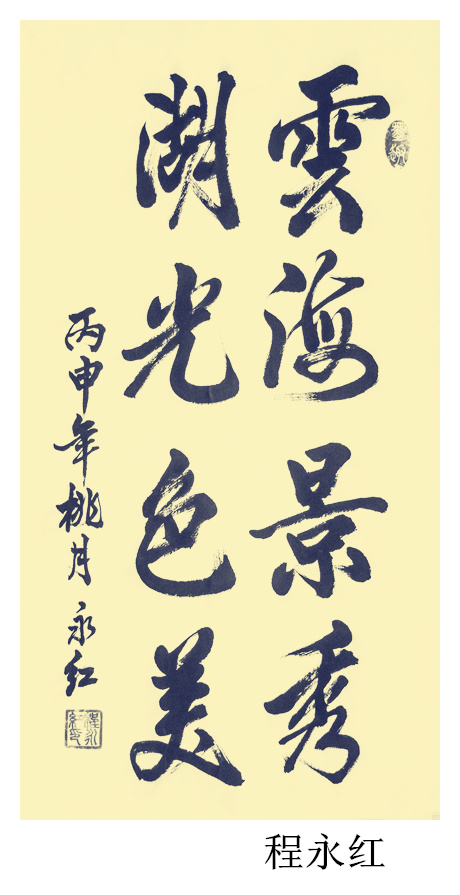 雲海景秀
湖光色美
丙申年桃月 永红
程永红